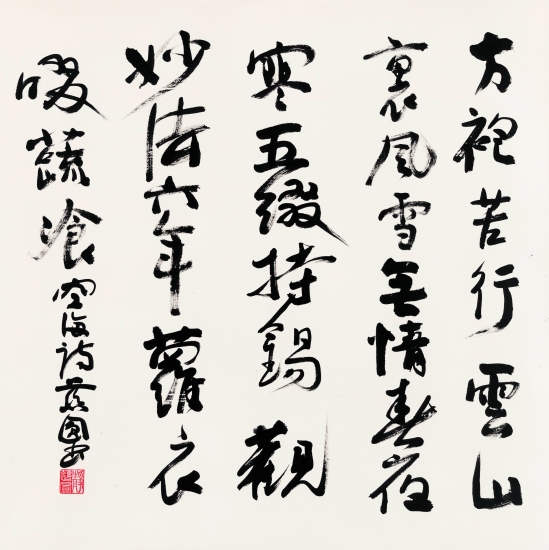 方袍苦行雲山
裏風雪無情春夜
寒五綴持錫觀
妙法六年蘿衣
啜蔬飡空海詩